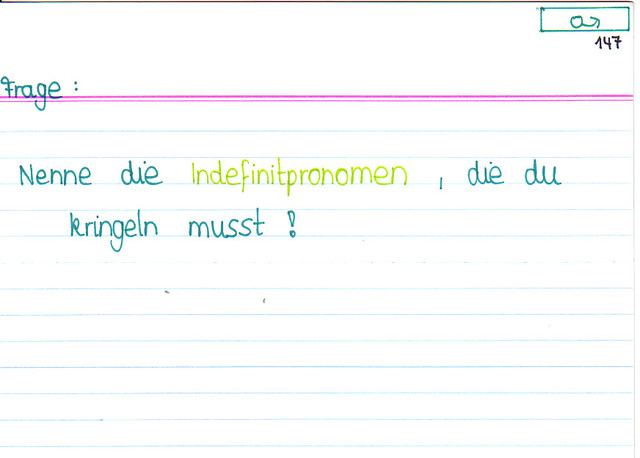 147
Frage :
Nenne die Indefinitpronomen , die du
kringeln musst !